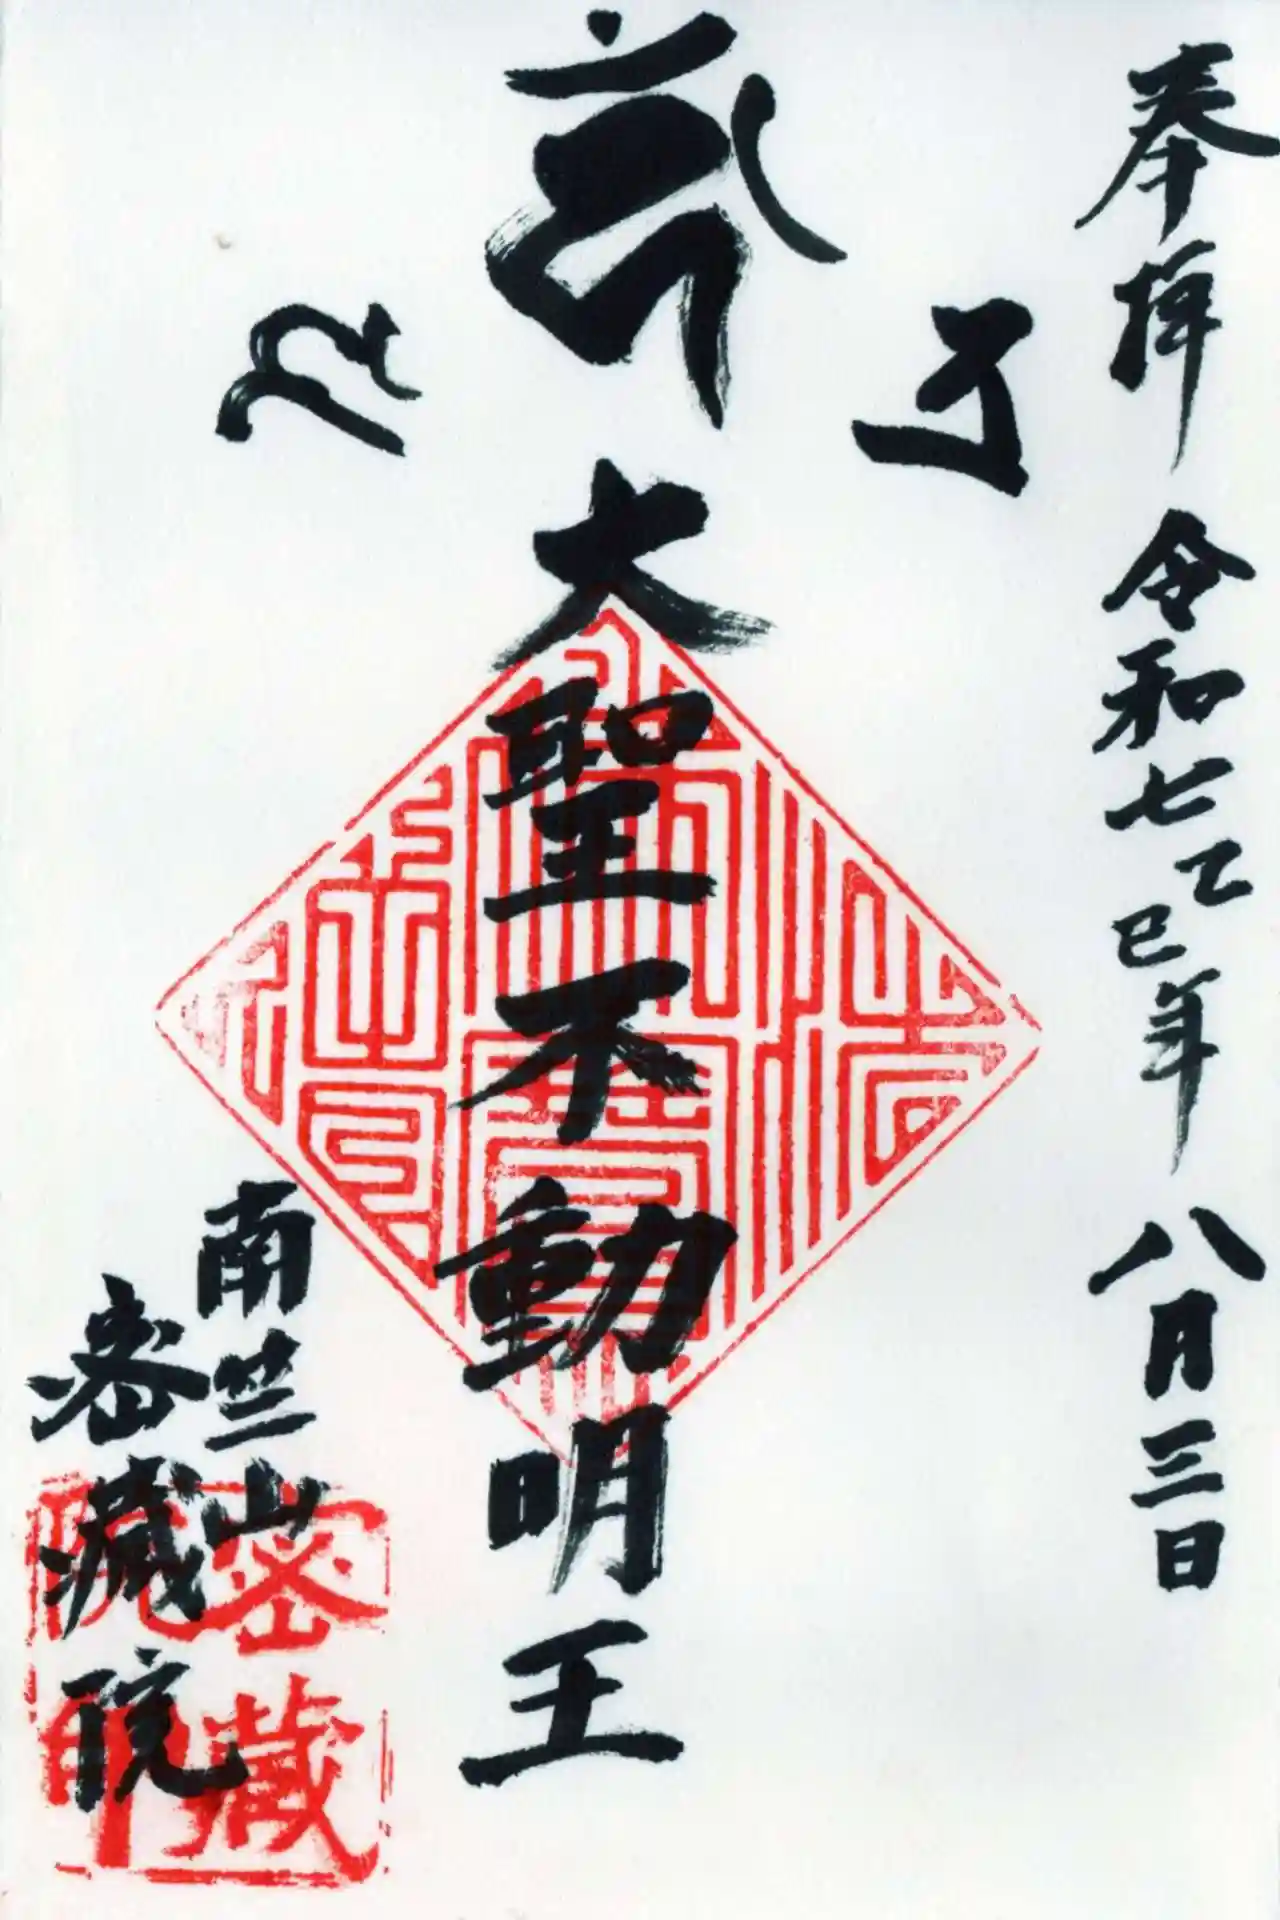 奉拝
令和七乙巳年
八月三日
大聖不動明王
南竺山
密蔵院
密蔵
院印